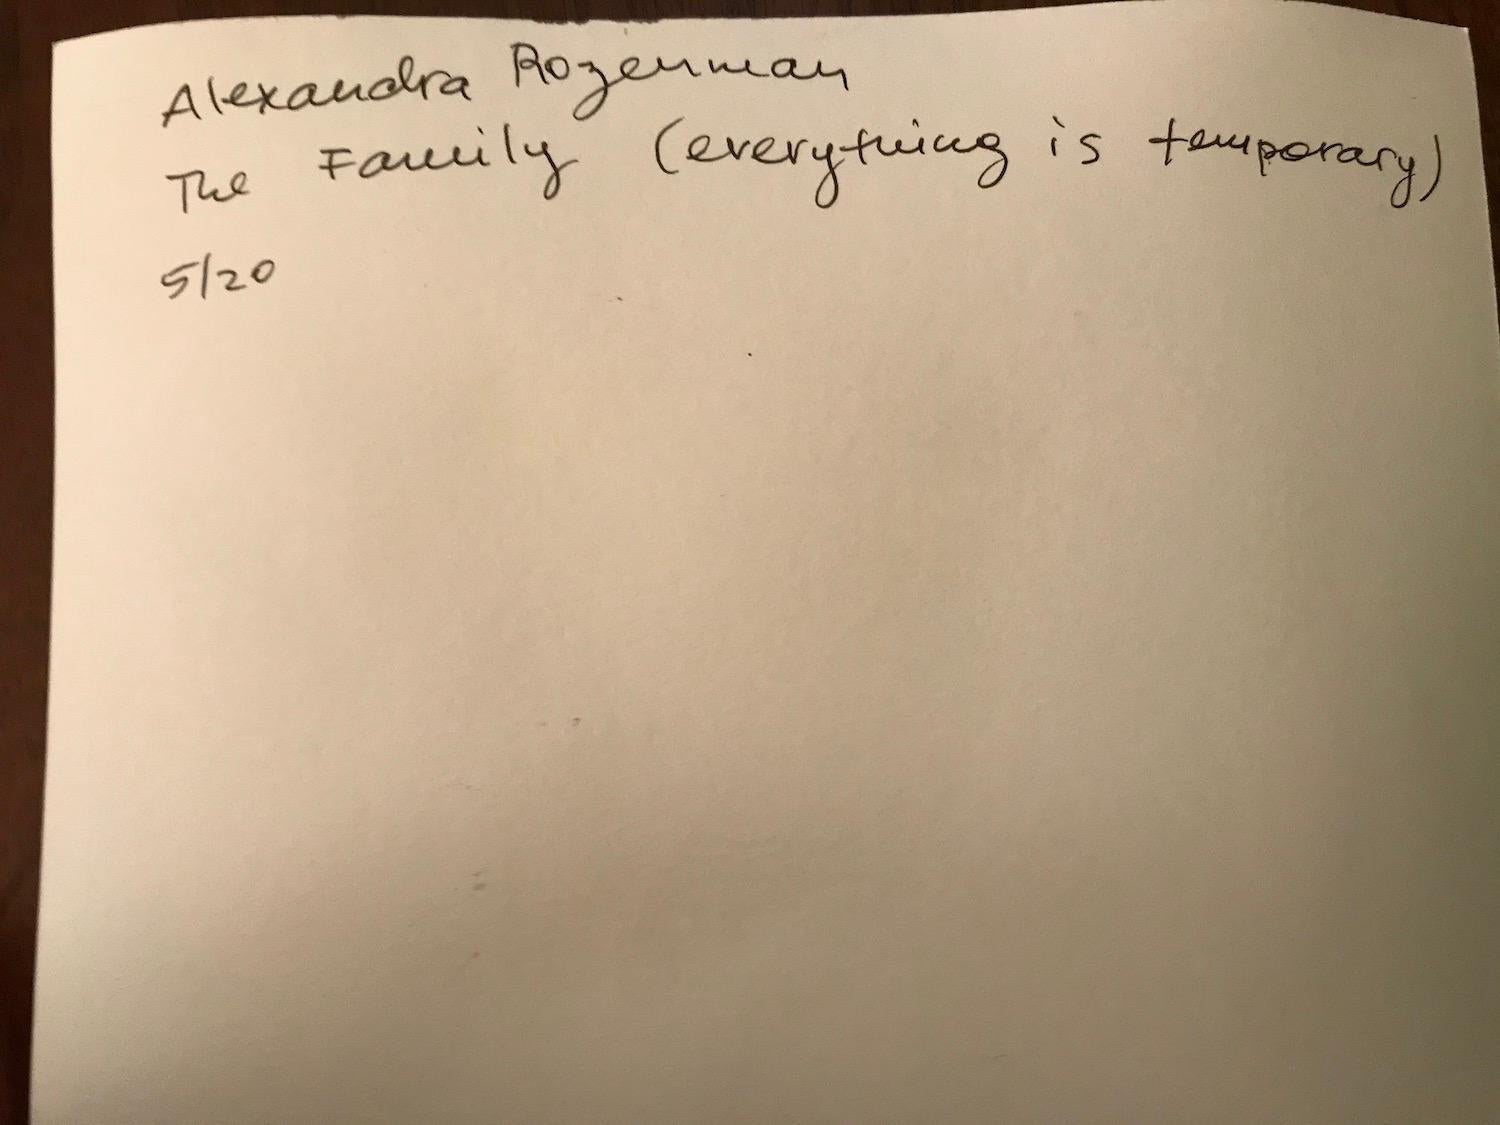 Alexandra Rozenman
The Family (everything is temporary)
5/20